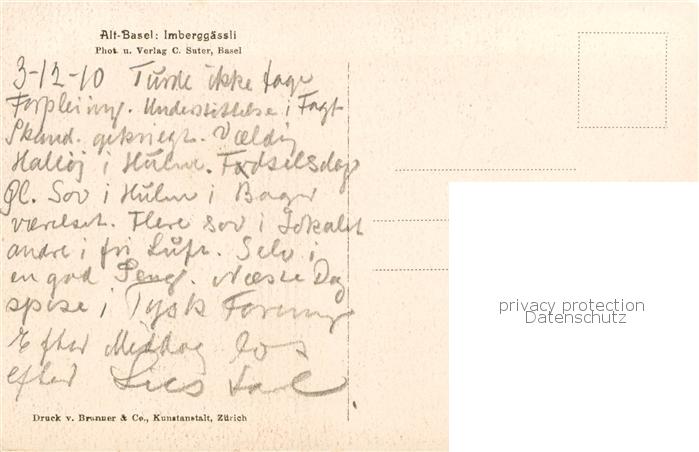 Alt-Basel: Imberggässli
Phot. u. Verlag C. Suter, Basel
3-12-10 Turde ikke tage
Forpleining. Understöttelse i Fagt
Skand. Vældig
Halløj i Hulen. Fødselsdag
Gl. Sov i Hulen i Bager
værelset. Flere sov i Lokalet
andre i fri Luft. Selv i
en god Seng. Næste Dag
spise i Tysk Forening
Efter Middag los
efter
Druck v. Brunner & Co., Kunstanstalt, Zürich
privacy protection
Datenschutz